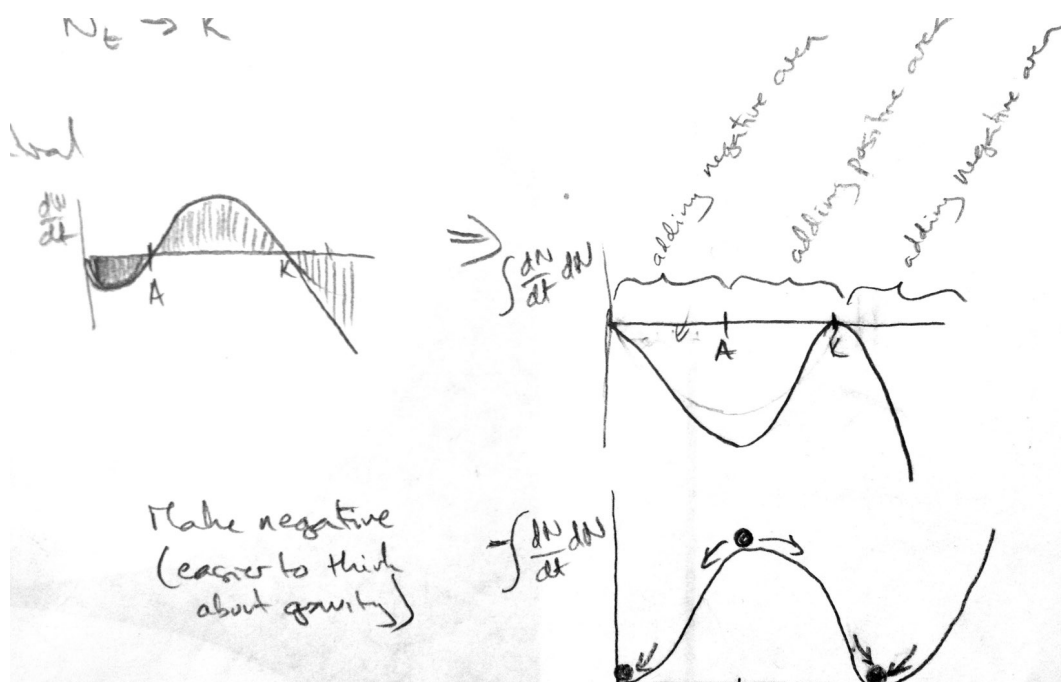 N_t → K
dN/dt
A
K
⇒
∫ dN/dt dN
adding negative area
adding positive area
adding negative area
A
K
Make negative
(easier to think
about gravity)
-∫ dN/dt dN